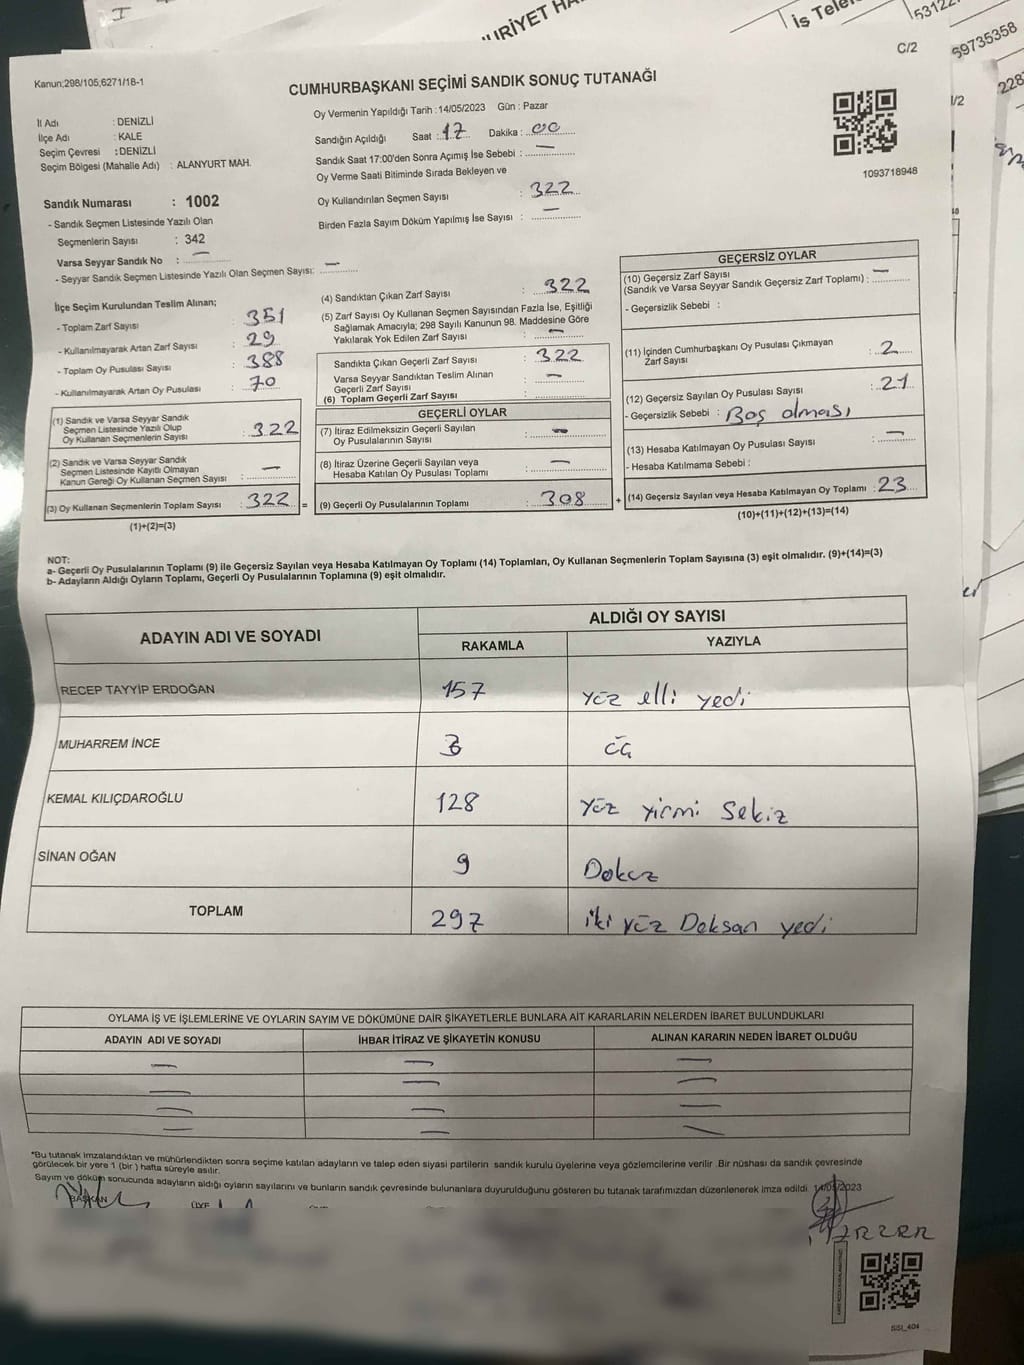 URİYET HA
İş Tele
53122
59735358
228
C/2
1/2
Kanun;298/105,6271/18-1
CUMHURBAŞKANI SEÇİMİ SANDIK SONUÇ TUTANAĞI
Oy Vermenin Yapıldığı Tarih : 14/05/2023 Gün : Pazar
İl Adı : DENİZLİ
İlçe Adı : KALE
Seçim Çevresi : DENİZLİ
Seçim Bölgesi (Mahalle Adı) : ALANYURT MAH.
Sandığın Açıldığı Saat : 17 Dakika : 00
Sandık Saat 17:00'den Sonra Açılmış İse Sebebi : —
Oy Verme Saati Bitiminde Sırada Bekleyen ve
Oy Kullandırılan Seçmen Sayısı : 322
Birden Fazla Sayım Döküm Yapılmış İse Sayısı : —
1093718948
Sandık Numarası : 1002
- Sandık Seçmen Listesinde Yazılı Olan
Seçmenlerin Sayısı : 342
Varsa Seyyar Sandık No : —
- Seyyar Sandık Seçmen Listesinde Yazılı Olan Seçmen Sayısı: —
İlçe Seçim Kurulundan Teslim Alınan;
- Toplam Zarf Sayısı : 351
- Kullanılmayarak Artan Zarf Sayısı : 29
- Toplam Oy Pusulası Sayısı : 388
- Kullanılmayarak Artan Oy Pusulası : 70
(1) Sandık ve Varsa Seyyar Sandık
Seçmen Listesinde Yazılı Olup
Oy Kullanan Seçmenlerin Sayısı : 322
(2) Sandık ve Varsa Seyyar Sandık
Seçmen Listesinde Kayıtlı Olmayan
Kanun Gereği Oy Kullanan Seçmen Sayısı : —
(3) Oy Kullanan Seçmenlerin Toplam Sayısı : 322 =
(1)+(2)=(3)
(4) Sandıktan Çıkan Zarf Sayısı : 322
(5) Zarf Sayısı Oy Kullanan Seçmen Sayısından Fazla İse, Eşitliği
Sağlamak Amacıyla; 298 Sayılı Kanunun 98. Maddesine Göre
Yakılarak Yok Edilen Zarf Sayısı : —
Sandıkta Çıkan Geçerli Zarf Sayısı : 322
Varsa Seyyar Sandıktan Teslim Alınan
Geçerli Zarf Sayısı : —
(6) Toplam Geçerli Zarf Sayısı :
GEÇERLİ OYLAR
(7) İtiraz Edilmeksizin Geçerli Sayılan
Oy Pusulalarının Sayısı : —
(8) İtiraz Üzerine Geçerli Sayılan veya
Hesaba Katılan Oy Pusulası Toplamı : —
(9) Geçerli Oy Pusulalarının Toplamı : 308 +
GEÇERSİZ OYLAR
(10) Geçersiz Zarf Sayısı
(Sandık ve Varsa Seyyar Sandık Geçersiz Zarf Toplamı) : —
- Geçersizlik Sebebi :
(11) İçinden Cumhurbaşkanı Oy Pusulası Çıkmayan
Zarf Sayısı : 2
(12) Geçersiz Sayılan Oy Pusulası Sayısı : 21
- Geçersizlik Sebebi : Boş olması
(13) Hesaba Katılmayan Oy Pusulası Sayısı : —
- Hesaba Katılmama Sebebi :
(14) Geçersiz Sayılan veya Hesaba Katılmayan Oy Toplamı : 23
(10)+(11)+(12)+(13)=(14)
NOT:
a- Geçerli Oy Pusulalarının Toplamı (9) ile Geçersiz Sayılan veya Hesaba Katılmayan Oy Toplamı (14) Toplamları, Oy Kullanan Seçmenlerin Toplam Sayısına (3) eşit olmalıdır. (9)+(14)=(3)
b- Adayların Aldığı Oyların Toplamı, Geçerli Oy Pusulalarının Toplamına (9) eşit olmalıdır.
ADAYIN ADI VE SOYADI
ALDIĞI OY SAYISI
RAKAMLA YAZIYLA
RECEP TAYYİP ERDOĞAN 157 Yüz elli yedi
MUHARREM İNCE 3 Üç
KEMAL KILIÇDAROĞLU 128 Yüz yirmi Sekiz
SİNAN OĞAN 9 Dokuz
TOPLAM 297 iki yüz Doksan yedi
OYLAMA İŞ VE İŞLEMLERİNE VE OYLARIN SAYIM VE DÖKÜMÜNE DAİR ŞİKAYETLERLE BUNLARA AİT KARARLARIN NELERDEN İBARET BULUNDUKLARI
ADAYIN ADI VE SOYADI İHBAR İTİRAZ VE ŞİKAYETİN KONUSU ALINAN KARARIN NEDEN İBARET OLDUĞU
— — —
— — —
— — —
— — —
*Bu tutanak imzalandıktan ve mühürlendikten sonra seçime katılan adayların ve talep eden siyasi partilerin sandık kurulu üyelerine veya gözlemcilerine verilir .Bir nüshası da sandık çevresinde
görülecek bir yere 1 (bir ) hafta süreyle asılır.
Sayım ve döküm sonucunda adayların aldığı oyların sayılarını ve bunların sandık çevresinde bulunanlara duyurulduğunu gösteren bu tutanak tarafımızdan düzenlenerek imza edildi. 14/05/2023
BAŞKAN ÜYE
ISSI_404